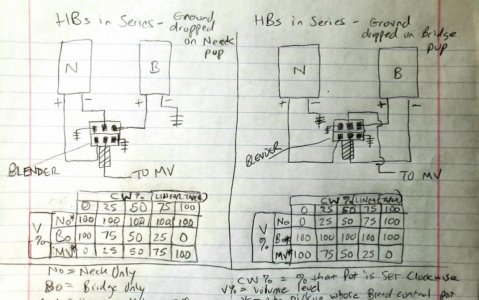 HBs in Series - Ground
dropped
on Neck
pup
N
B
+
-
+
-
BLENDER
TO MV
CW% (LINEAR TAPER)
0 25 50 75 100
V%
No* 100 100 100 100 100
Bo 100 75 50 25 0
MV* 0 25 50 75 100
No = Neck Only
Bo = Bridge Only
HBs in Series - Ground
dropped on Bridge
pup
N
B
+
-
+
-
BLENDER
TO MV
CW% (LINEAR TAPER)
0 25 50 75 100
V%
No 0 25 50 75 100
Bo* 100 100 100 100 100
MV* 100 75 50 25 0
CW% = % that Pot is Set Clockwise
V% = Volume Level
pickup whose Blend control pot